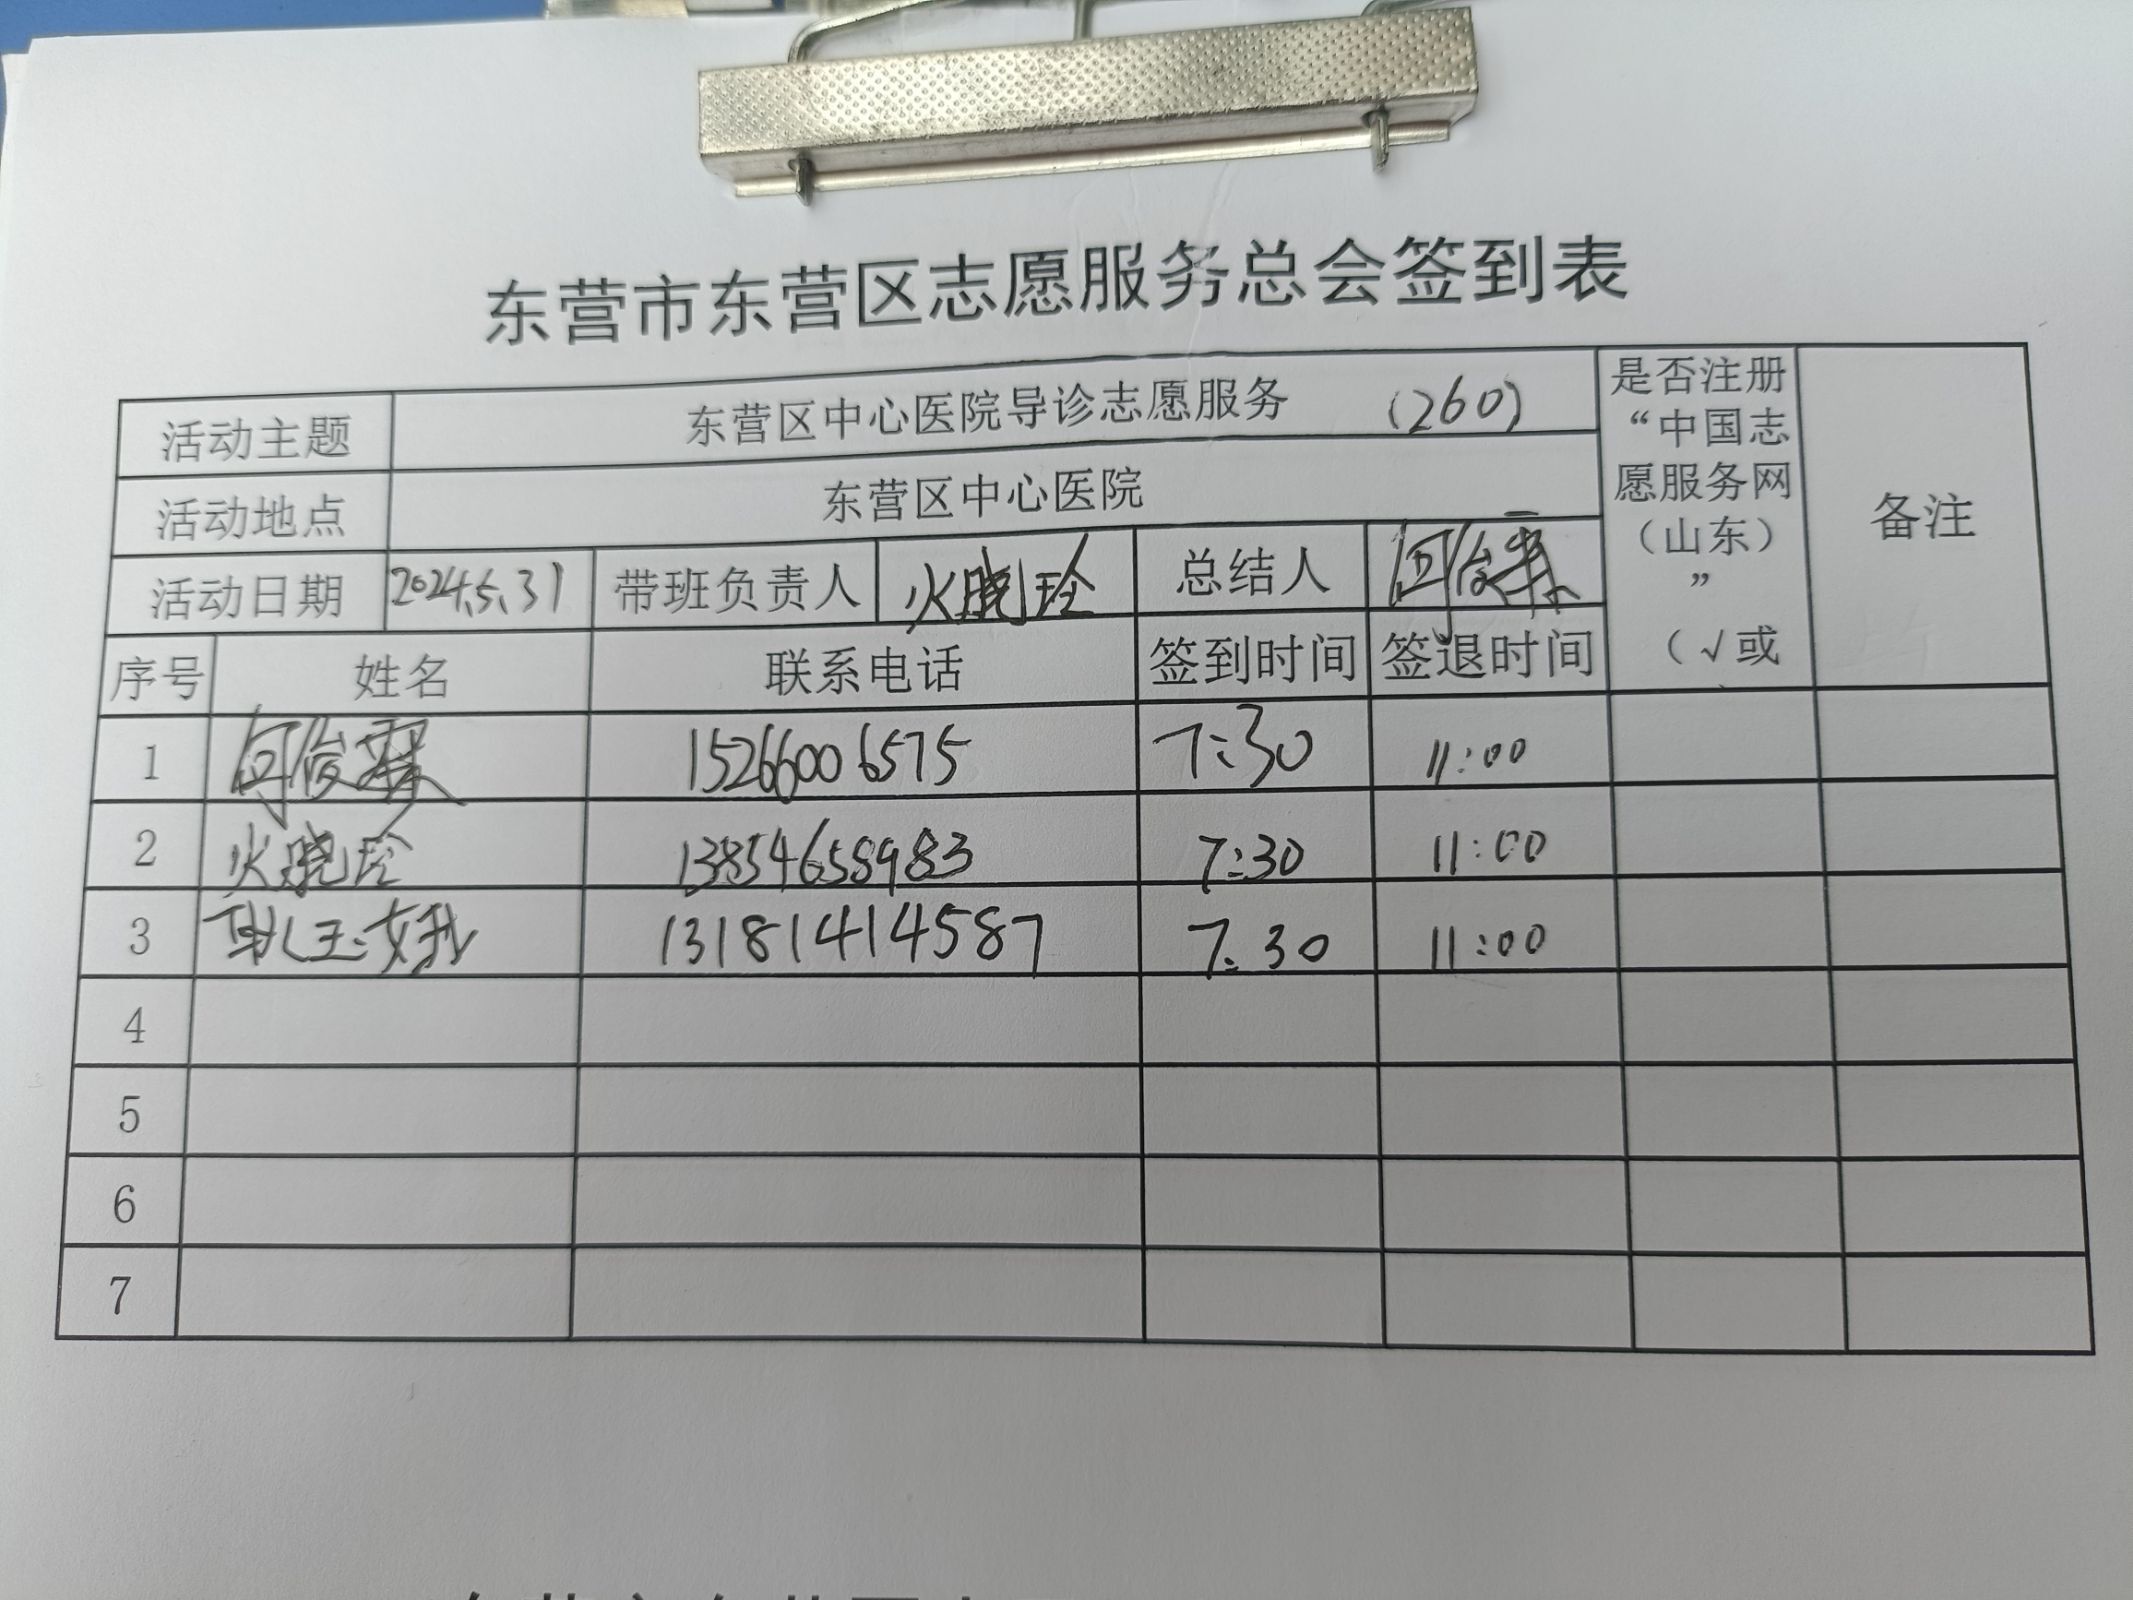 东营市东营区志愿服务总会签到表
活动主题 东营区中心医院导诊志愿服务 (260) 是否注册“中国志愿服务网（山东）”（√或 备注
活动地点 东营区中心医院
活动日期 2024.5.31 带班负责人 火晓玲 总结人
序号 姓名 联系电话 签到时间 签退时间
1 15266006575 7:30 11:00
2 火晓玲 13854658983 7:30 11:00
3 耿玉娥 13181414587 7:30 11:00
4
5
6
7